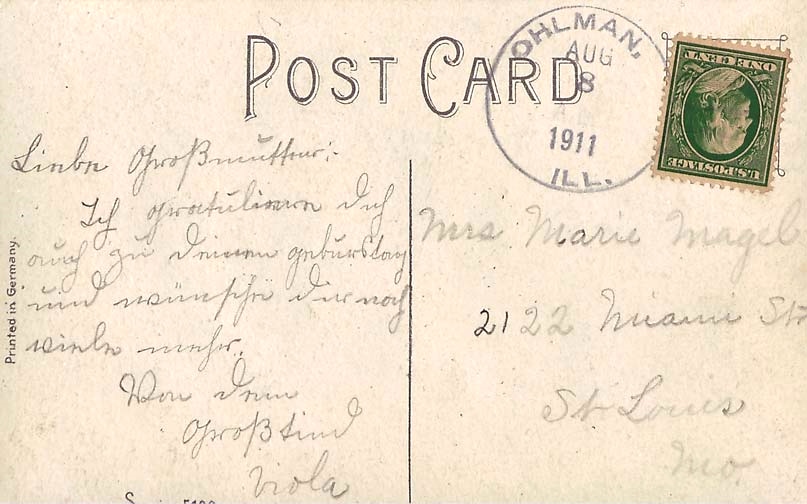 POST CARD
OHLMAN,
AUG
8
1911
ILL.
ONE CENT
U.S. POSTAGE
Liebe Großmutter:-
Ich gratulieren dich
auch zu deinen geburstag
und wünsche dir noch
viele mehr.
Von dem
Großkind
Viola
Mrs Marie Magel
2122 Miami Str
St Louis
Mo.
Printed in Germany.